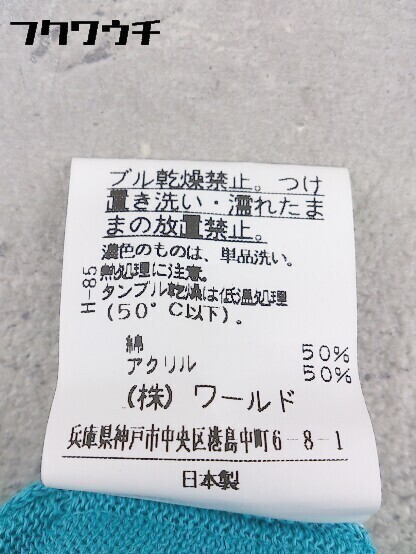 フクワウチ
ブル乾燥禁止。つけ
置き洗い・濡れたま
まの放置禁止。
濃色のものは、単品洗い。
熱処理に注意。
タンブル乾燥は低温処理
(50°C以下)。
H-85
綿 50%
アクリル 50%
(株) ワールド
兵庫県神戸市中央区港島中町6-8-1
日本製